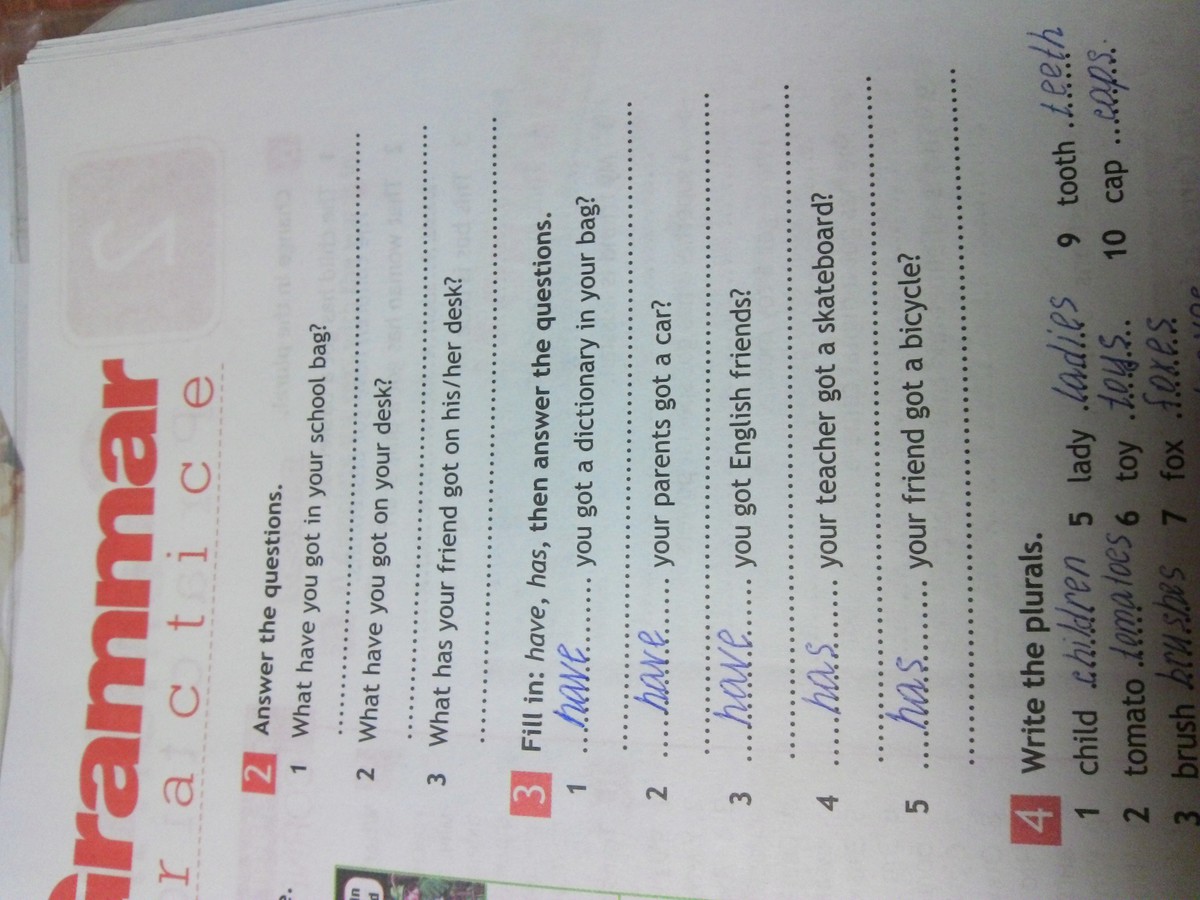 Grammar
ractice
2 Answer the questions.
1 What have you got in your school bag?
2 What have you got on your desk?
3 What has your friend got on his/her desk?
3 Fill in: have, has, then answer the questions.
1 ...have....... you got a dictionary in your bag?
2 ....have...... your parents got a car?
3 ....have...... you got English friends?
4 .....has....... your teacher got a skateboard?
5 ....has........ your friend got a bicycle?
4 Write the plurals.
1 child children 5 lady ladies 9 tooth teeth
2 tomato tomatoes 6 toy toys 10 cap caps
3 brush brushes 7 fox foxes